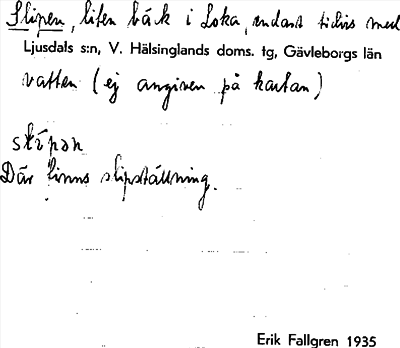 Slipen, liten bäck i Loka, endast tidvis med
Ljusdals s:n, V. Hälsinglands doms. tg, Gävleborgs län
vatten (ej angiven på kartan)
Där finns slipställning.
Erik Fallgren 1935